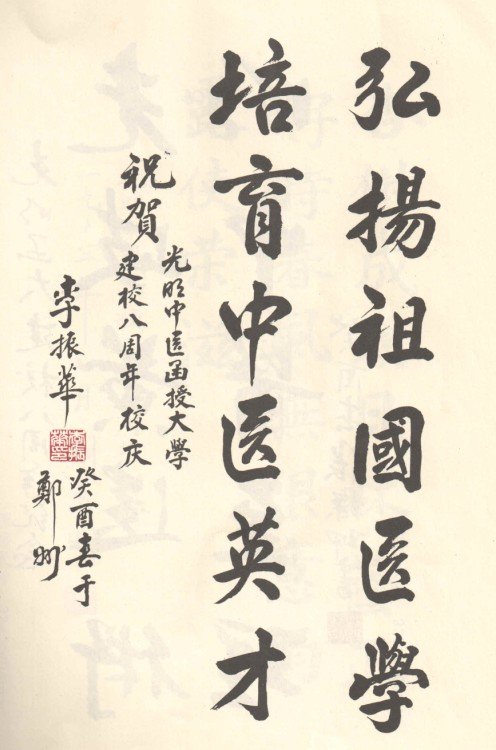 弘揚祖國医學
培育中医英才
祝賀
光明中医函授大學
建校八周年校庆
李振華
癸酉春于
鄭州